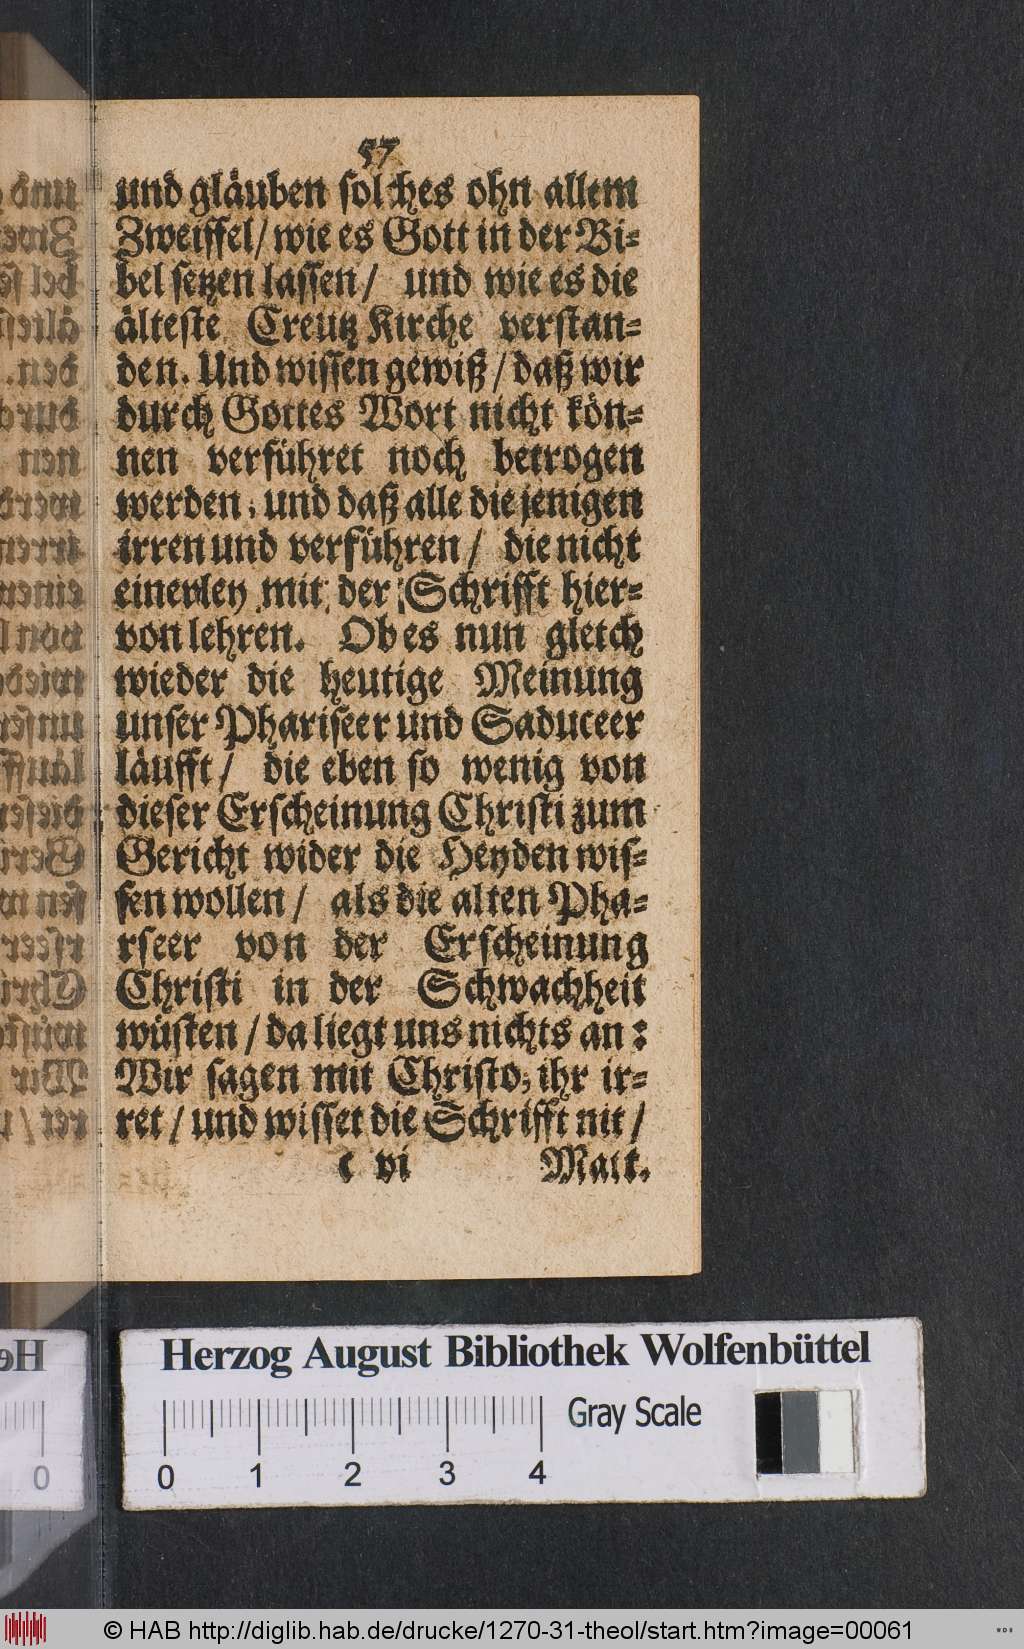 57
und gläuben solches ohn allem
Zweiffel/ wie es Gott in der Bi-
bel setzen lassen/ und wie es die
älteste Creutz Kirche verstan-
den. Und wissen gewiß/ daß wir
durch Gottes Wort nicht kön-
nen verführet noch betrogen
werden, und daß alle die jenigen
irren und verführen/ die nicht
einerley mit der Schrifft hier-
von lehren. Ob es nun gleich
wieder die heutige Meinung
unser Phariseer und Saduceer
läufft/ die eben so wenig von
dieser Erscheinung Christi zum
Gericht wider die Heyden wis-
sen wollen/ als die alten Pha-
rseer von der Erscheinung
Christi in der Schwachheit
wüsten/ da liegt uns nichts an:
Wir sagen mit Christo, ihr ir-
ret/ und wisset die Schrifft nit/
c vi Matt.
Herzog August Bibliothek Wolfenbüttel
Gray Scale
0 1 2 3 4
© HAB http://diglib.hab.de/drucke/1270-31-theol/start.htm?image=00061